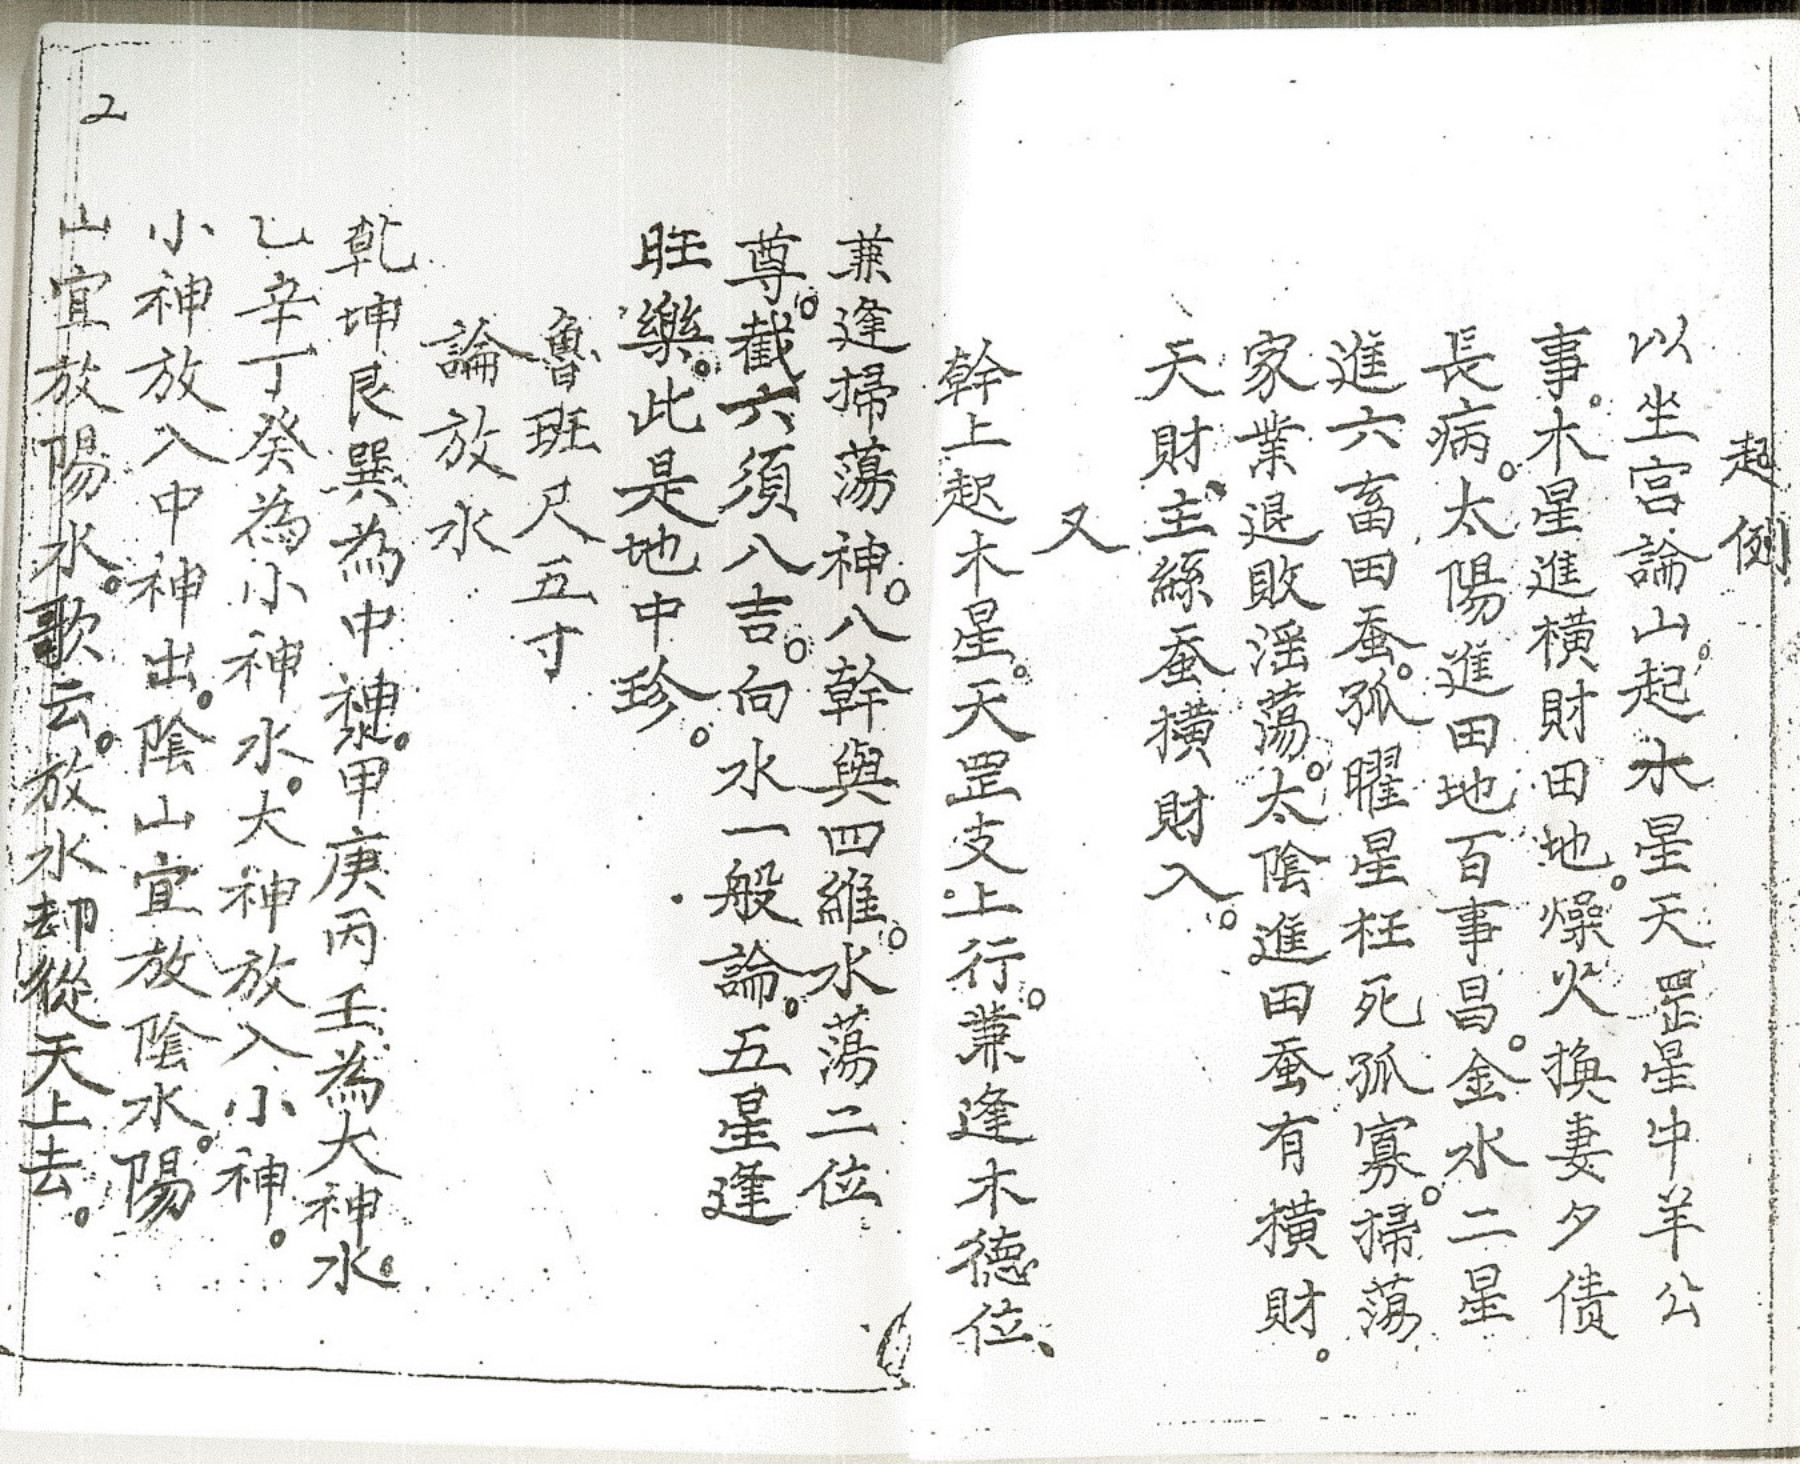 起例
以坐宫論山。起水星天罡星中羊公
事。木星進横財田地。燥火換妻夕债
長病。太陽進田地百事昌。金水二星
進六畜田蚕。孤曜星枉死孤寡。掃蕩
家業退敗淫蕩。太陰進田蚕有横財。
天財主絲蚕横財入。
又
幹上起木星。天罡支上行。兼逢木德位、
兼逢掃蕩神。八幹與四維。水蕩二位
尊。截六須八吉。向水一般論。五星逢
旺樂。此是地中珍。
魯班尺五寸
論放水
乾坤艮巽為中神。甲庚丙壬為大神水。
乙辛丁癸為小神水。大神放入小神。
小神放入中神出。陰山宜放陰水。陽
山宜放陽水。歌云。放水却從天上去。
2